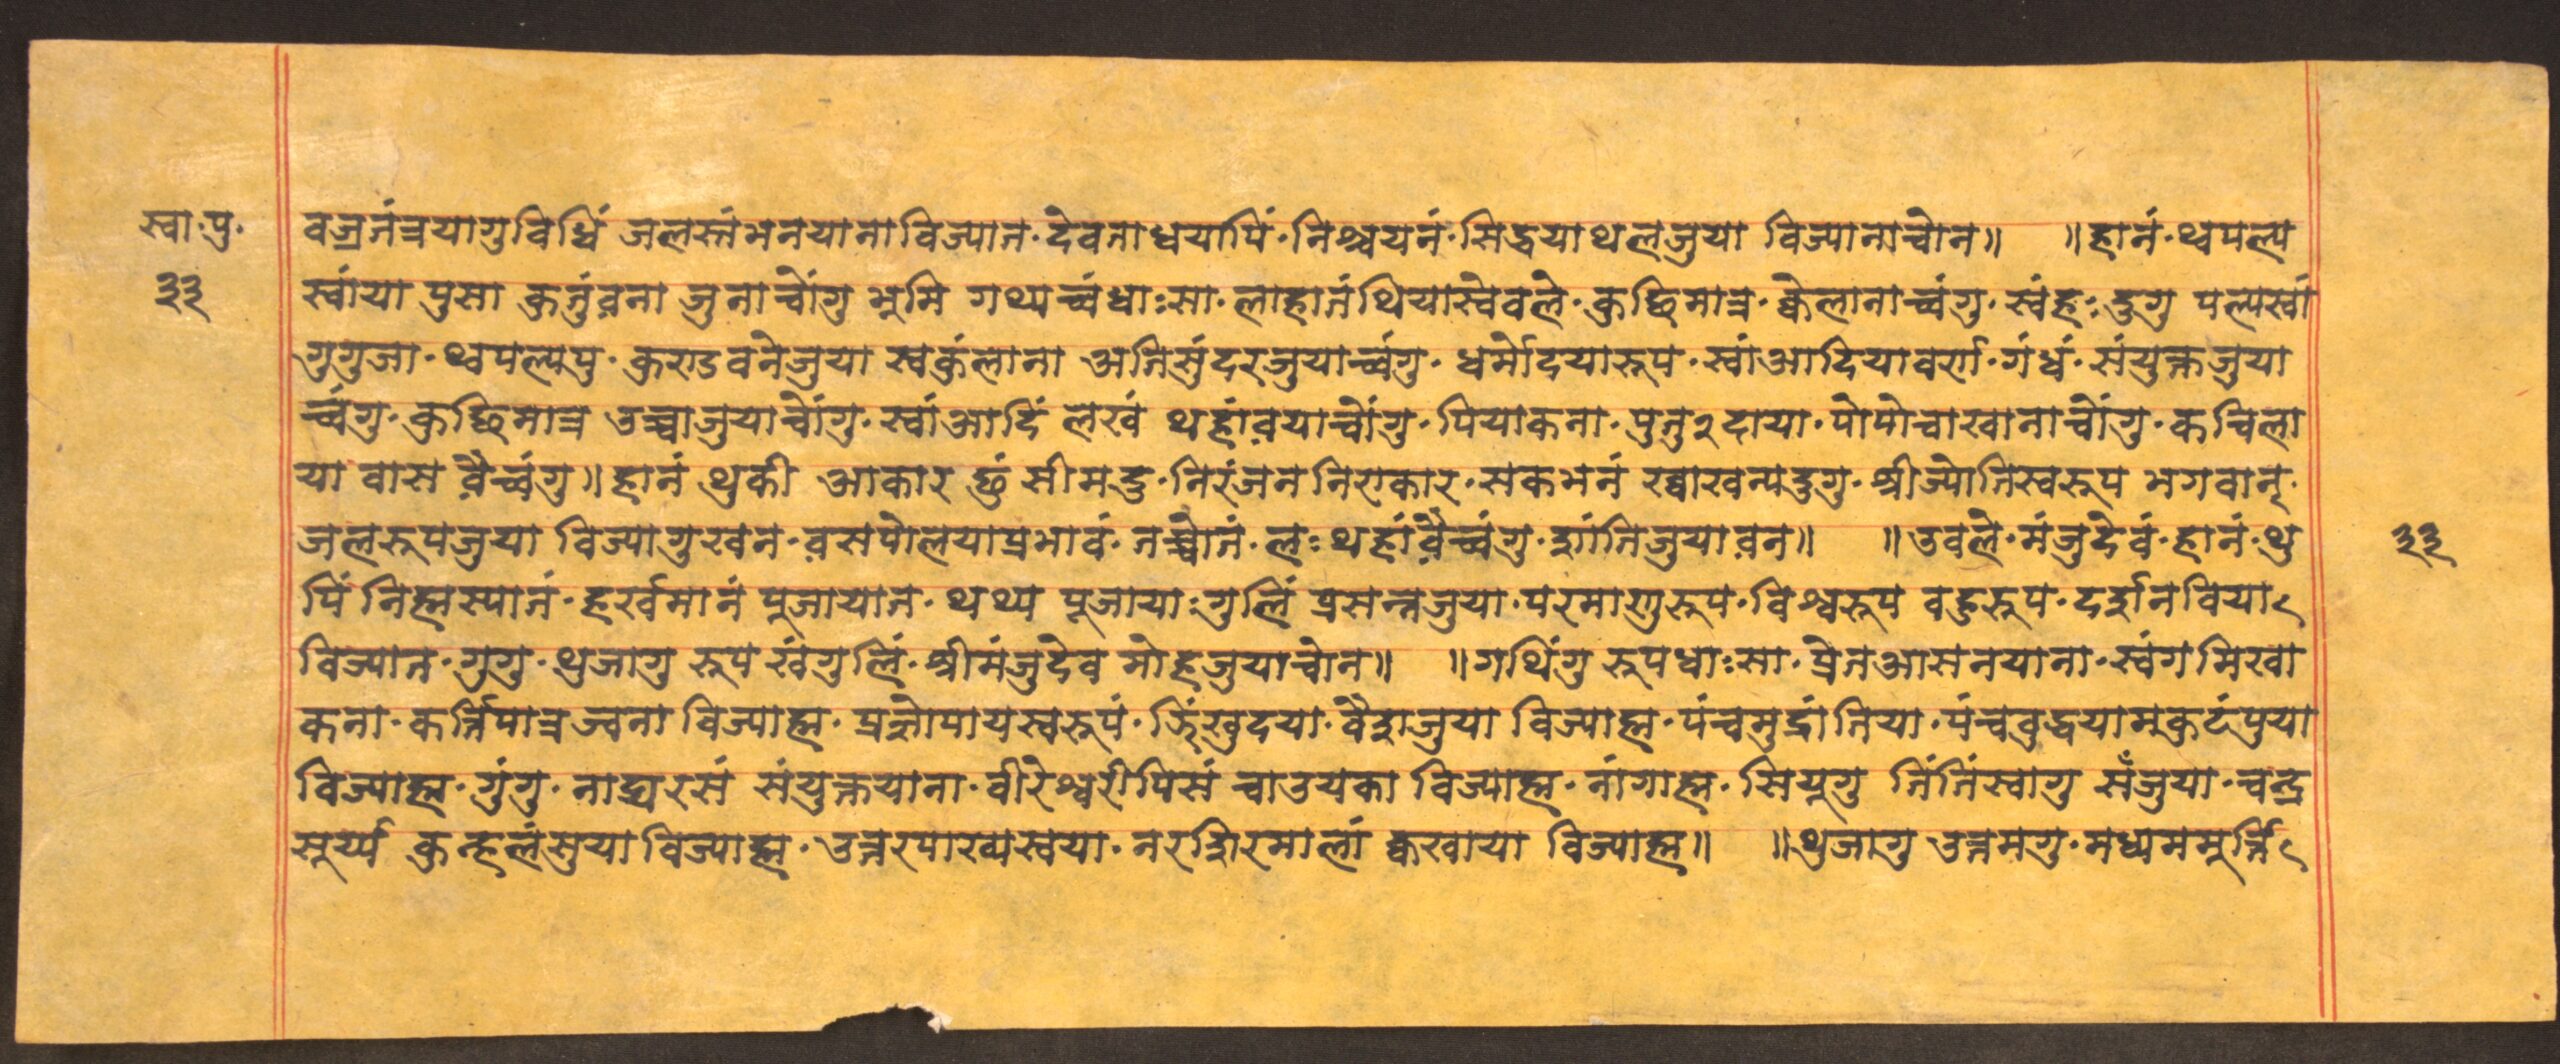 स्वा.पु.
३३
वज्रतंत्रयागुविधिं जलस्तंभनयानाविज्यात. देवताध्वयापिं. निश्चयनं. सिद्धयाथलजुया विज्यानाचोन॥ ॥हानं. थ्वपल्य
स्वांया पुसा कुतुंव़ना जुनाचोंगु भूमि गथ्यच्वंधाःसा. लाहातंथियास्वेवले. कुछिमात्र. क्वेलानाच्वंगु. स्वंहः दुगु पल्यखां
गुगुजा. थ्वपल्यपु. कुराडवनेजुया स्वकुंलाना अतिसुंदरजुयाच्वंगु. धर्मोदयारूप. स्वांआदियावर्रा. गंधं. संयुक्तजुया
च्वंगु. कुछिमात्र उच्चाजुयाचोंगु. स्वांआदिं लेखं थहांव़याचोंगु. पियाकना. पुतु२दाया. पोपोचाखानाचोंगु. कचिला
या वास व़ैच्वंगु॥हानं थुकी आकार छुं सीमदु. निरंजन निराकार. सकभनं ख्वाखन्यदुगु. श्रीज्योतिस्वरूप भगवान्.
जलरूपजुया विज्यागुखन. व़सपोलयाप्रभावं. नच्चोनं. लः थहांव़ैच्वंगु. शांतिजुयाव़न॥ ॥उवले. मंजुदेवं. हानं. थु
३३
पिं निह्मस्यानं. हर्खमानं पूजायात. थथ्य पूजायाःगुलिं प्रसन्नजुया. परमाणुरूप. विश्वरूप वहुरूप. दर्शनवियाः
विज्यात. गुगु. थुजागु रूप खंगुलिं. श्रीमंजुदेव मोहजुयाचोन॥ ॥गथिंगु रूपधाःसा. प्रेतआसनयाना. स्वंगमिखा
कना. कर्त्तिपात्रज्वना विज्याह्म. प्रज्ञोपायस्वरूपं. त्रिंखुदया. वैशजुया विज्याह्म. पंचमुद्रांतिया. पंचवुद्धयामकुटंपुया
विज्याह्म. गुंगु. नाट्यरसं संयुक्तयाना. वीरेश्वरीपिसं चाउयका विज्याह्म. नांगाह्म. सियूगु तिंतिंस्वागु सँजुया. चन्द्र
सूर्य्य कुन्हलंसुया विज्याह्म. उत्तरपाख्यस्वया. नरशिरमालां क्वखाया विज्याह्म॥ ॥थुजागु उत्तमगु. मध्यममूर्त्तिः